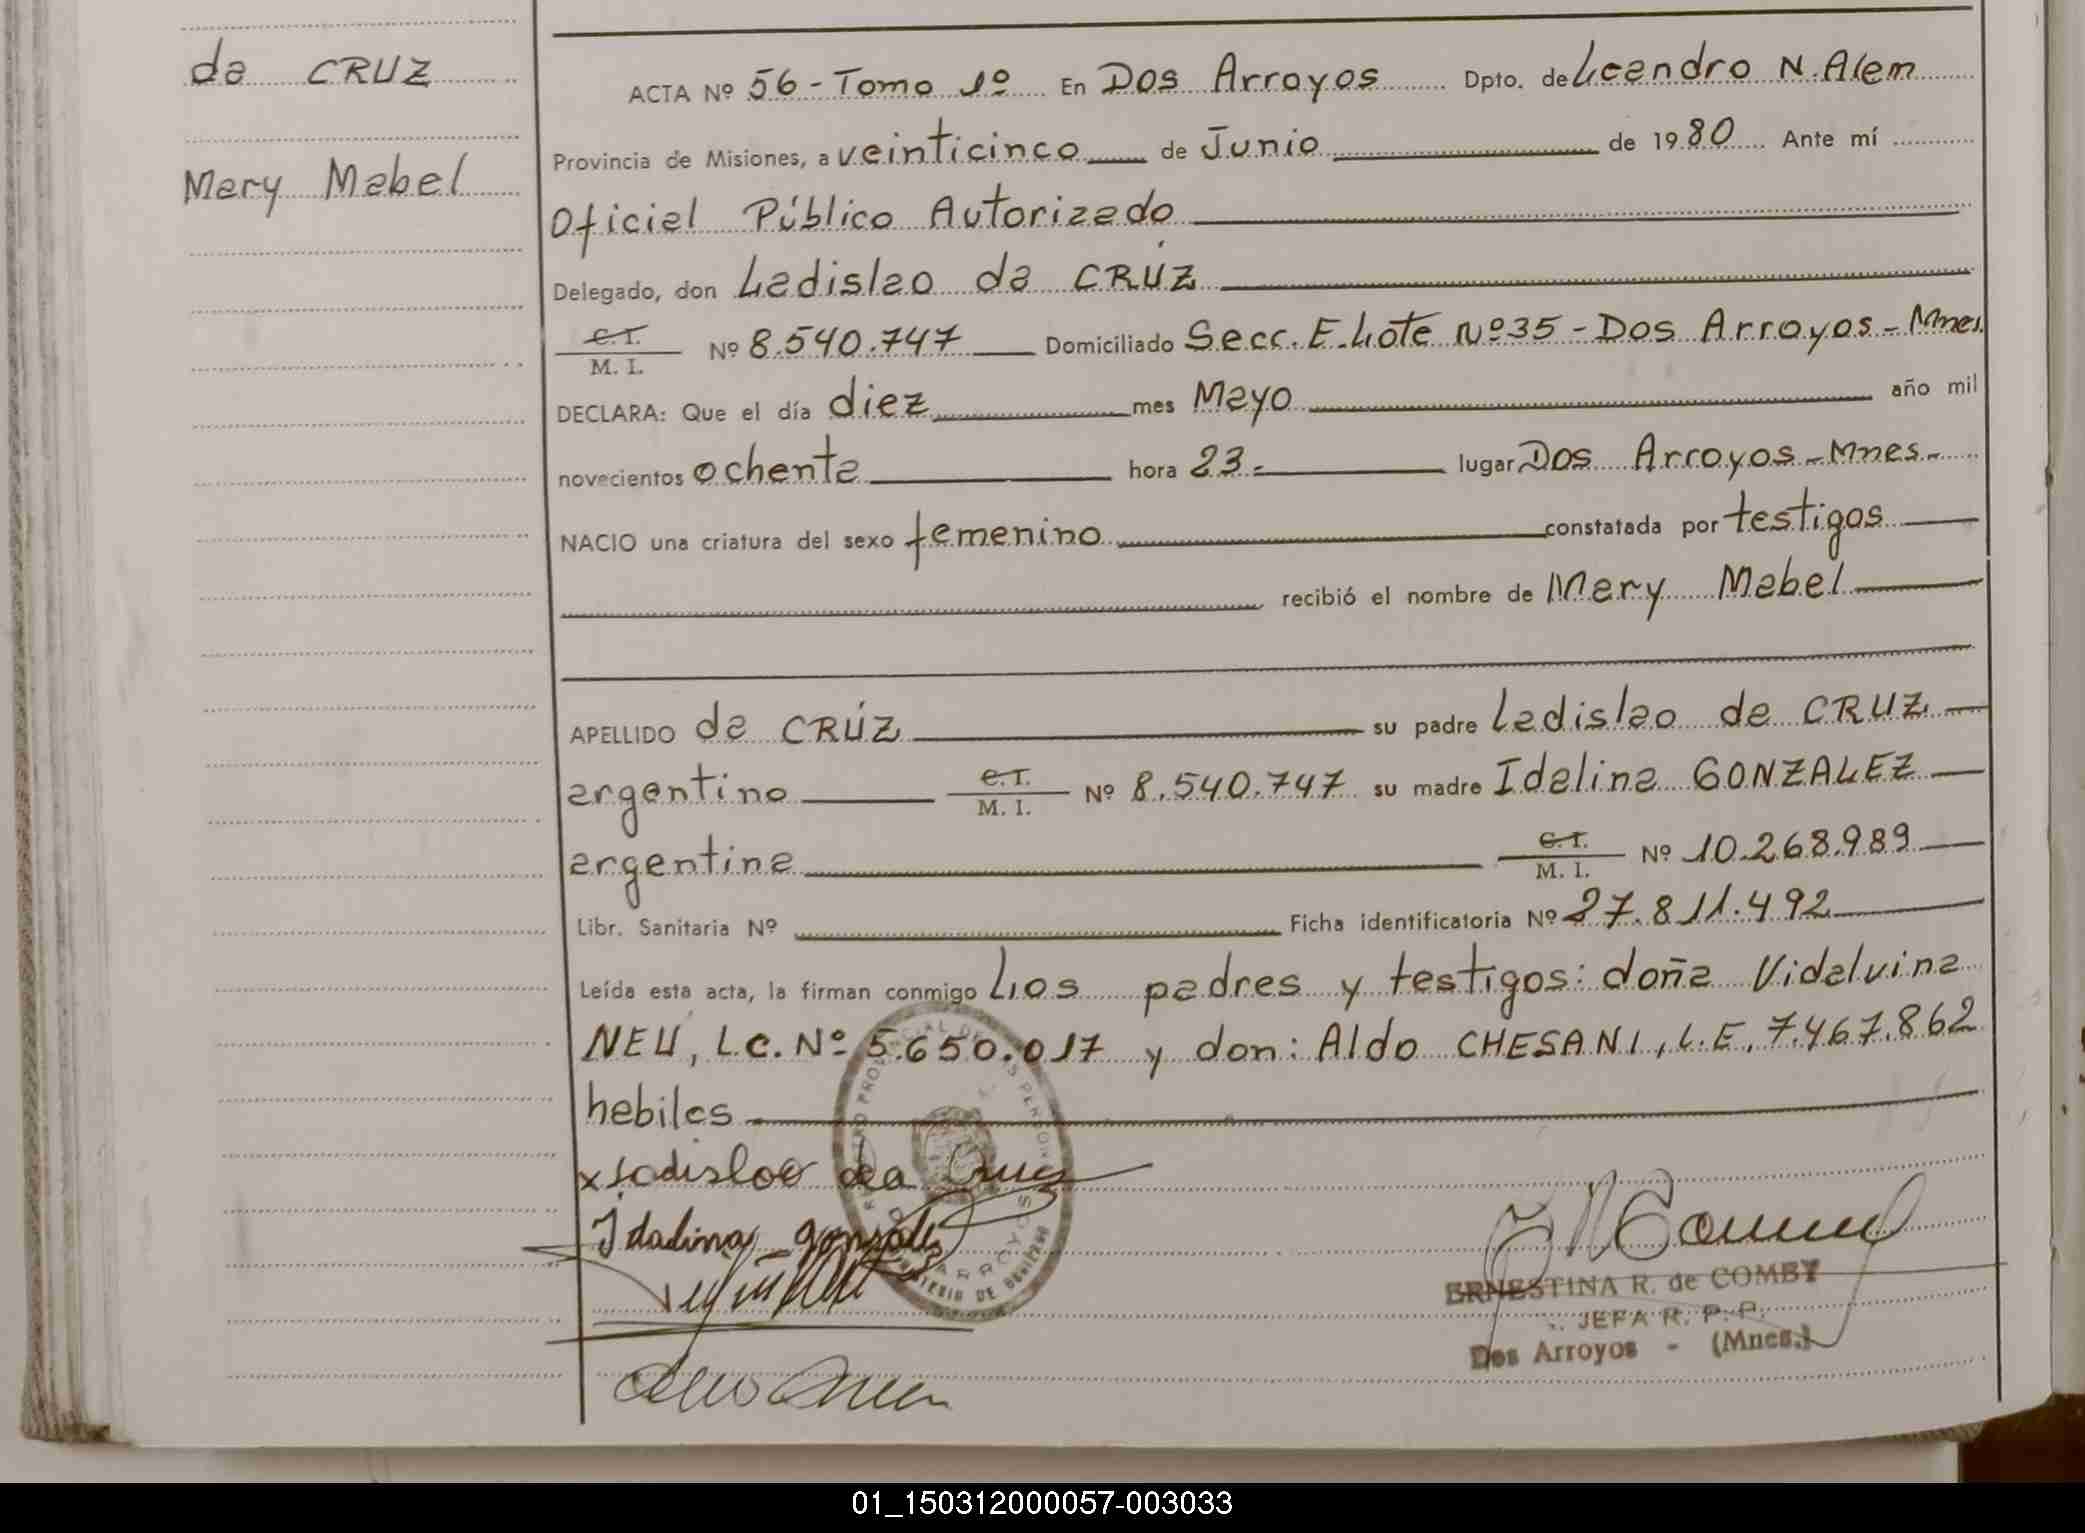 da CRUZ
Mary Mabel
ACTA Nº 56 - Tomo 1º En Dos Arroyos Dpto. de Leandro N. Alem
Provincia de Misiones, a veinticinco de Junio de 1980 Ante mí
Oficial Público Autorizado
Delegado, don Ladislao da CRÚZ
C.I.
M. I. Nº 8.540.747 Domiciliado Secc. E. Lote Nº 35 - Dos Arroyos - Mnes.
DECLARA: Que el día diez mes Mayo año mil
novecientos ochenta hora 23.- lugar Dos Arroyos - Mnes -
NACIO una criatura del sexo femenino constatada por testigos
recibió el nombre de Mary Mabel
APELLIDO da CRÚZ su padre Ladislao da CRUZ
argentino C.I.
M. I. Nº 8.540.747 su madre Idalina GONZALEZ
argentina C.I.
M. I. Nº 10.268.989
Libr. Sanitaria Nº Ficha identificatoria Nº 27.811.492
Leída esta acta, la firman conmigo Los padres y testigos: doña Vidalvina
NEU, L.C. Nº 5.650.017 y don: Aldo CHESANI, L.E. 7.467.862
habiles
x Ladislao da Cruz
Idalina gonzalez
ERNESTINA R. de COMBY
JEFA R. P. P.
Dos Arroyos - (Mnes.)
01_150312000057-003033